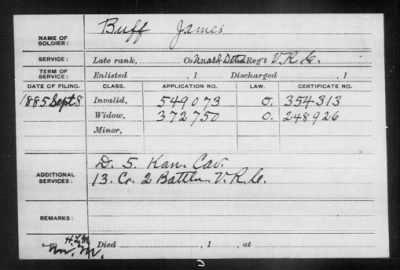 NAME OF SOLDIER: Buff James
SERVICE: Late rank, Co. Reg't V.R.C.
TERM OF SERVICE: Enlisted , 1 Discharged , 1
DATE OF FILING. CLASS. APPLICATION NO. LAW. CERTIFICATE NO.
1885 Sept 8 Invalid, 549073 O. 354313
Widow, 372750 O. 248926
Minor,
ADDITIONAL SERVICES: D. 5 Kan. Cav.
13. Co. 2 Battln. V.R.C.
REMARKS:
Died , 1 , at